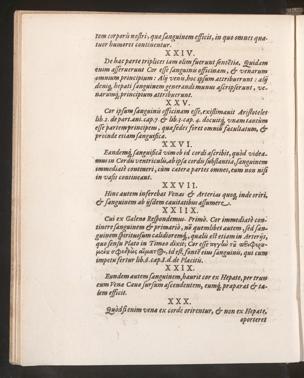 tem corporis nostri, quæ sanguinem efficit, in quo omnes qua-
tuor humores continentur.
XXIV.
De hac parte triplices iam olim fuerunt sentētiæ. Quidam
enim asseruerunt Cor esse sanguinis officinam, & venarum
omnium principium: Alij venis, hoc ipsum attribuerunt: alij
deniq, hepati sanguinem generandi munus ascripserunt, ve-
narumq, principium attribuerunt.
XXV.
Cor ipsum sanguinis officinam esse, existimauit Aristoteles
lib. 2. de part. ani. cap. & lib. 3. cap. 4. docuitq, vnam tantùm
esse partem principem, quæ sedes siret omniū facultatum, &
proinde etiam sanguificā.
XXVI.
Eandemq, sanguificā vim ob id cordi ascribit, quòd videa-
mus in Cordis ventriculis, ab ipsa cordis substantia, sanguinem
immediatè contineri, cùm cætera partes omnes, eum non nisi
in vasis contineant.
XXVII.
Hinc autem inferebat Venas & Arterias quoq, inde oriri,
& sanguinem ab ijsdem cauitatibus assumere.
XXIIX.
Cui ex Galeno Respondemus. Primò. Cor immediatè con-
tinere sanguinem & primariò, nō quemlibet autem, sed san-
guinem spirituosum calidioremq, qualis est etiam in Arterijs,
quo sensu Plato in Timæo dixit; Cor esse
id est, fontē eius sanguinis, qui cum
impetu fertur lib. 6. cap. 8. d. de Placitis.
XXIX.
Eundem autem sanguinem, haurit cor ex Hepate, per trun
cum Venæ Cauæ sursum ascendentem, eumq, præparat & ta-
lem efficit.
XXX.
Quòd si enim vena ex corde orirentur, & non ex Hepate,
oporteret